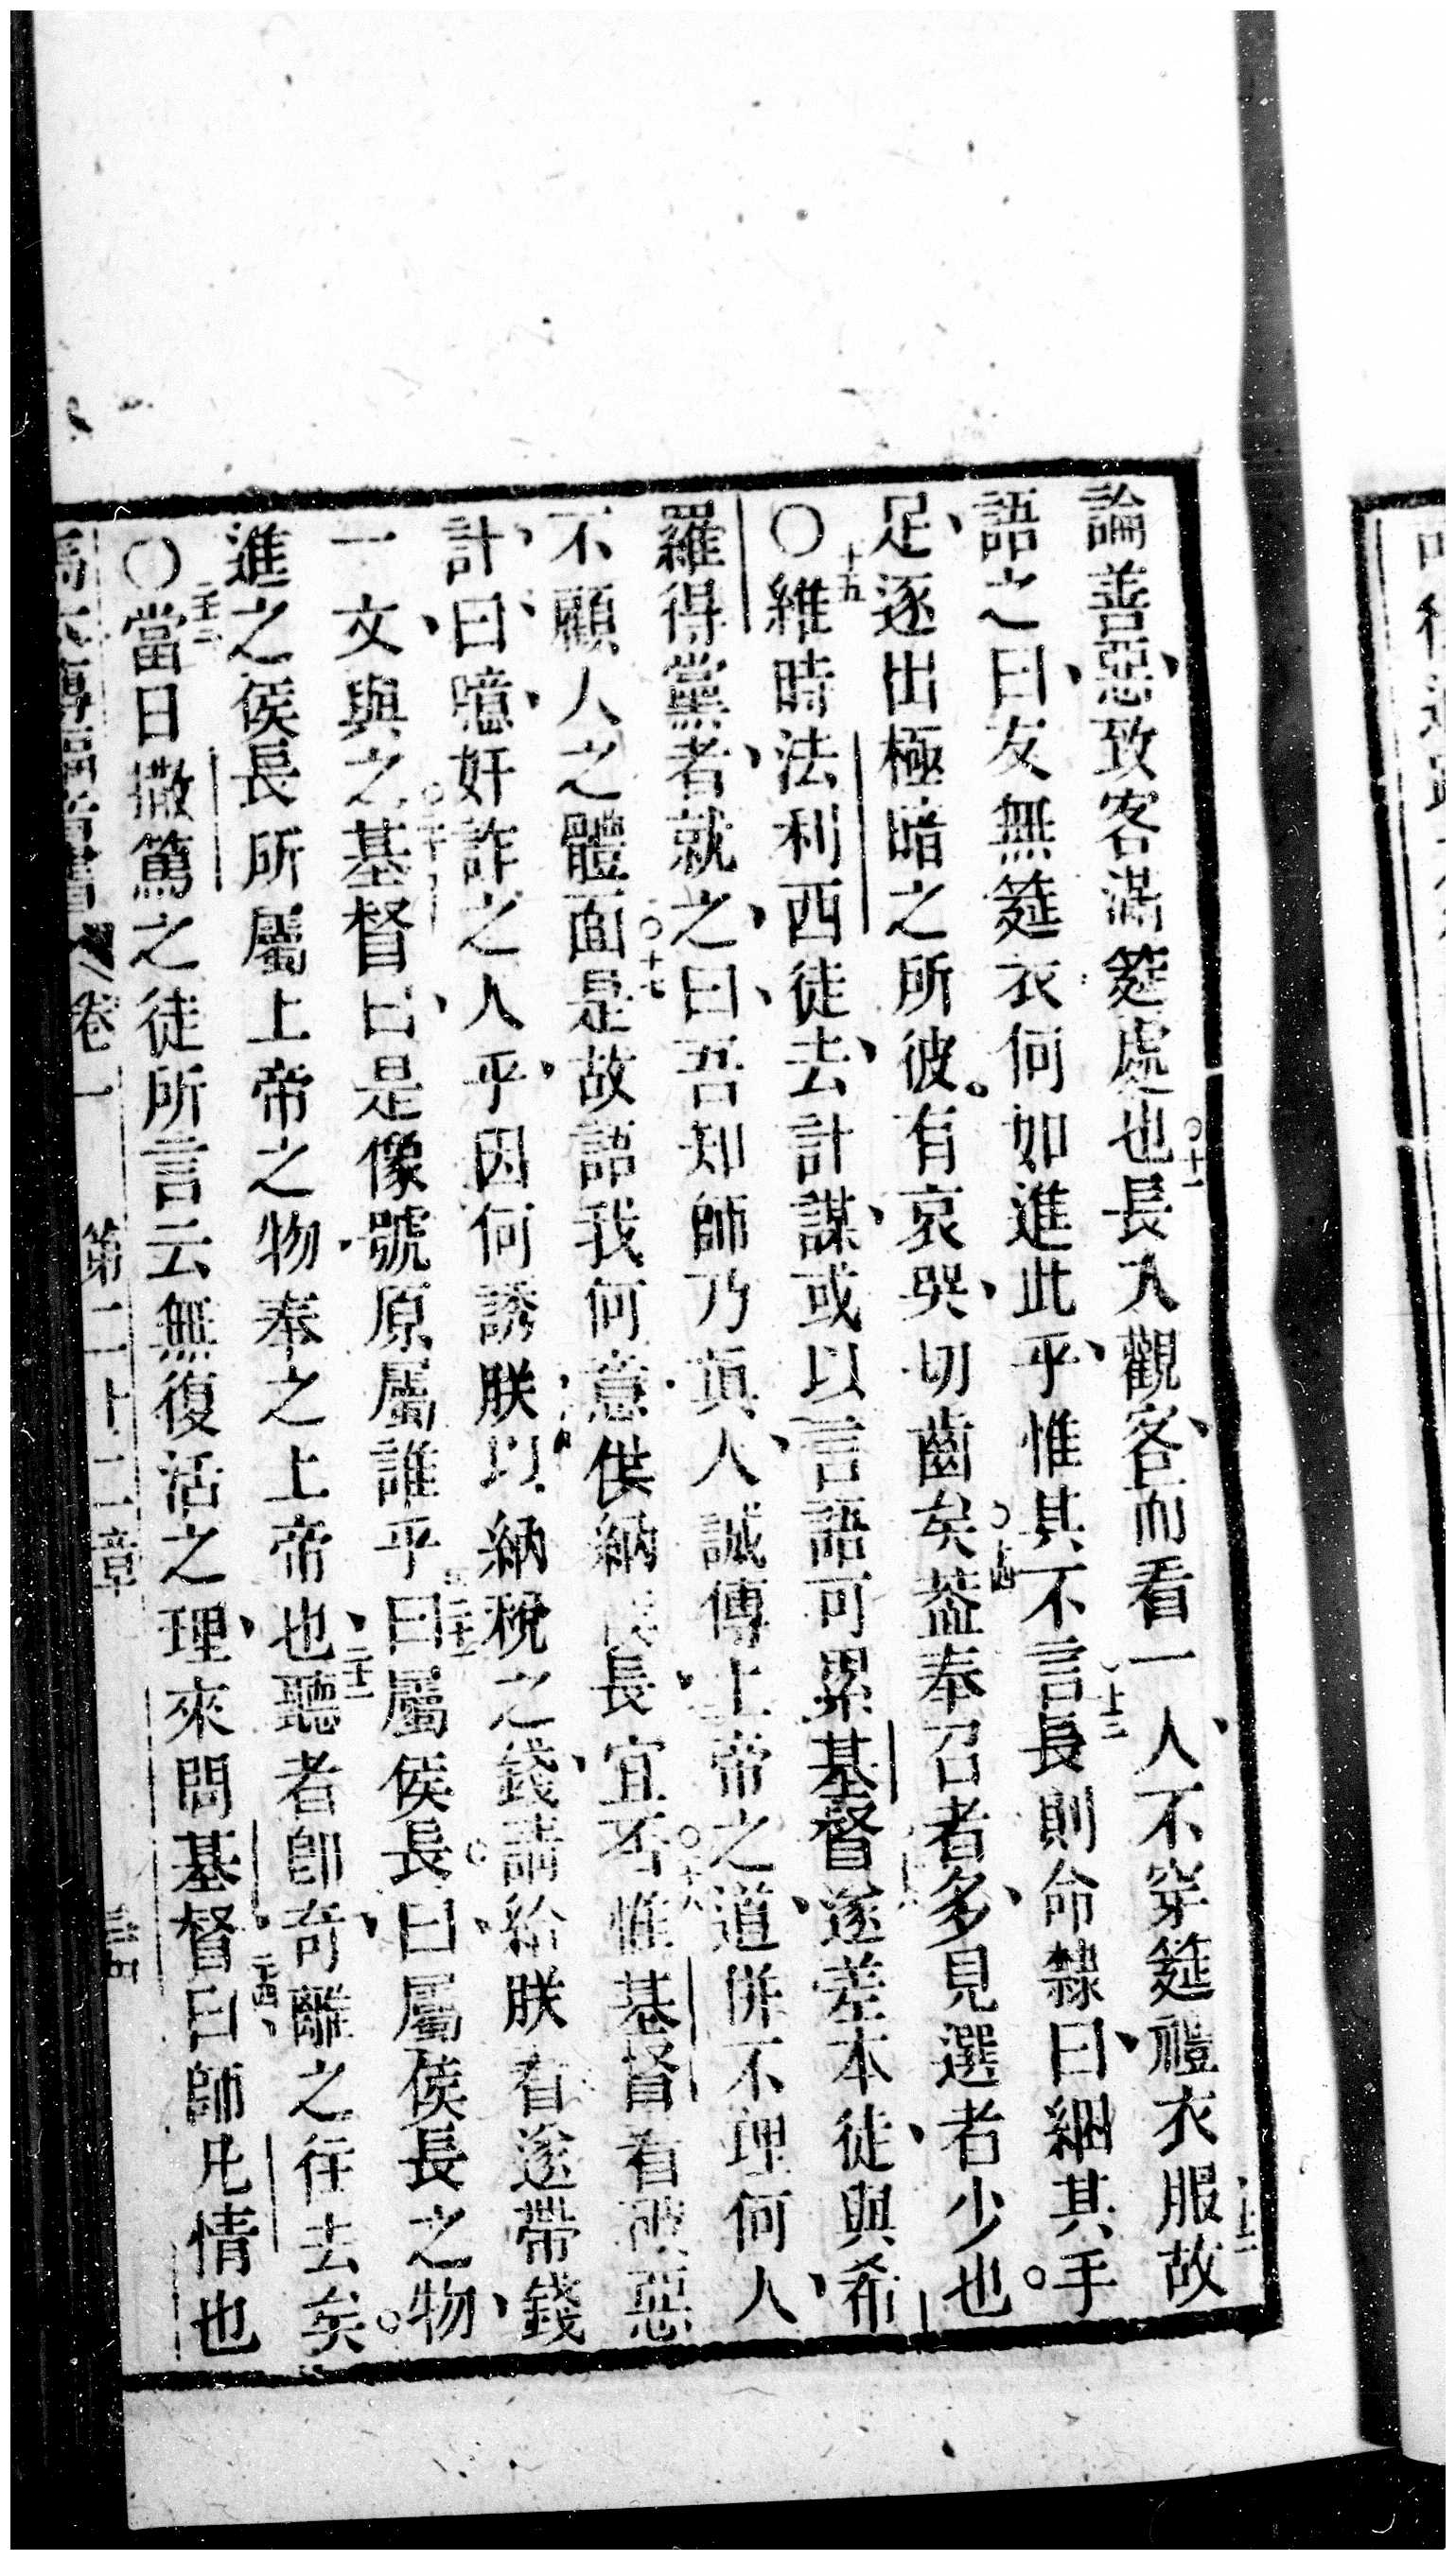 論善惡致客滿筵處也〇十一長入觀客而看一人不穿筵禮衣服故十二
語之曰友無筵衣何如進此乎惟其不言十三長則命隸曰綑其手
足逐出極暗之所彼有哀哭切齒矣〇十四葢奉召者多見選者少也
〇十五維時法利西徒去計謀或以言語可累基督遂差本徒與希
羅得黨者就之曰吾知師乃眞人誠傳上帝之道併不理何人
不顧人之體面〇十七是故語我何意供納長宜否〇十八惟基督看破惡
計曰噫奸詐之人乎因何誘朕以納稅之錢請給朕看遂帶錢
一文與之〇二十基督曰是像號原屬誰乎二十一曰屬侯長曰屬侯長之物
進之侯長所屬上帝之物奉之上帝也二十二聽者卽奇離之往去矣
〇二十三當日撒篤之徒所言云無復活之理來問基督二十四曰師凡情也
卷一 第二十二章
可往